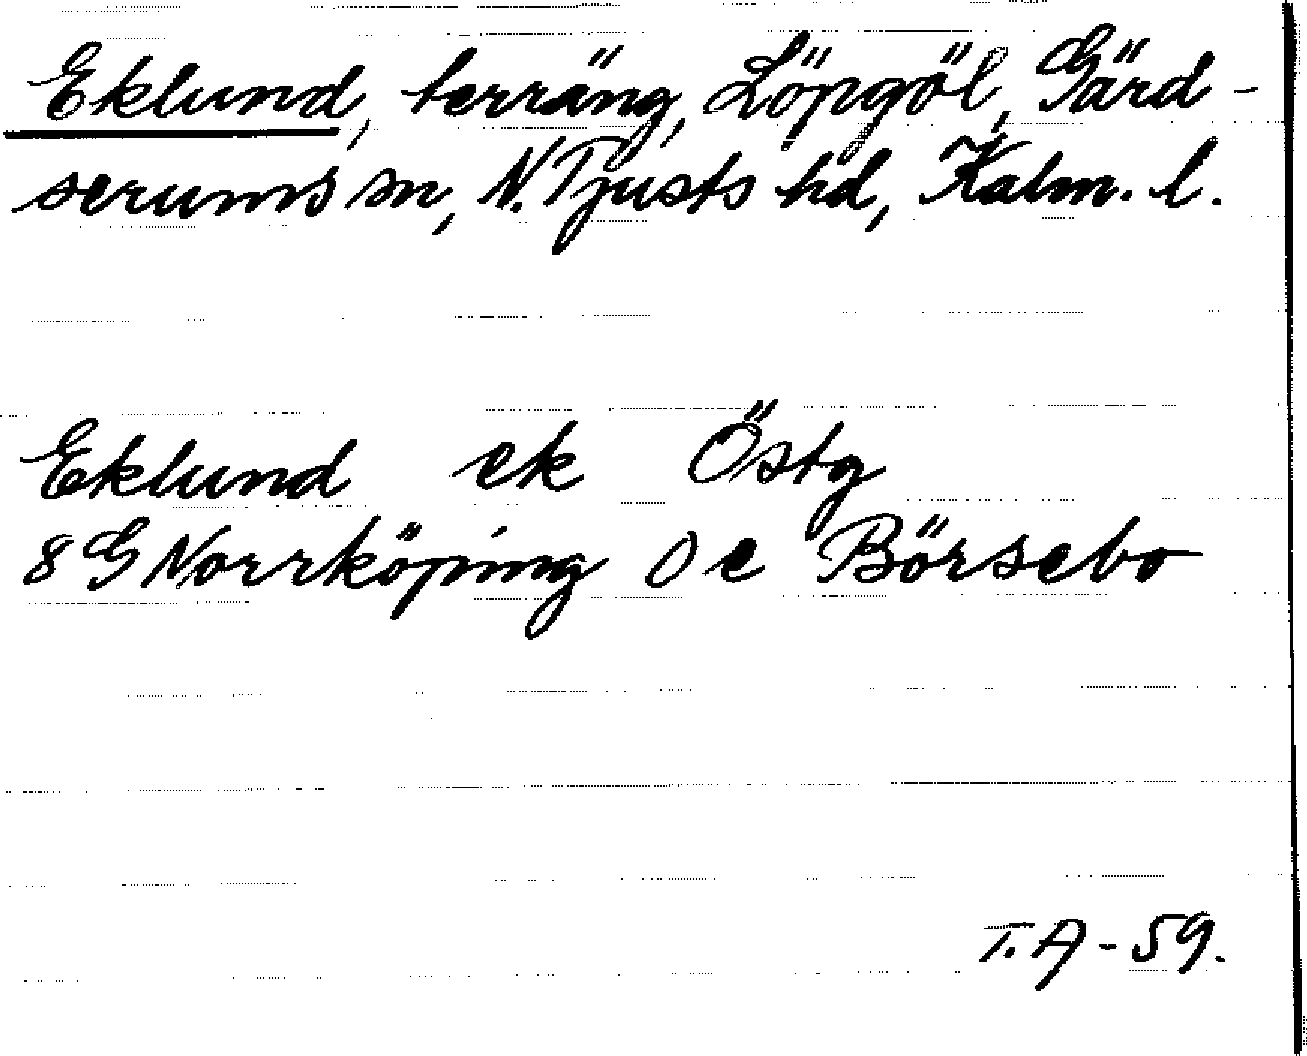 Eklund, terräng, Löpgöl, Gärd-
serums sn, N. Tjusts hd, Kalm. l.
Eklund ek Östg
8 G Norrköping 0 e Börsebo
T. A - 59.